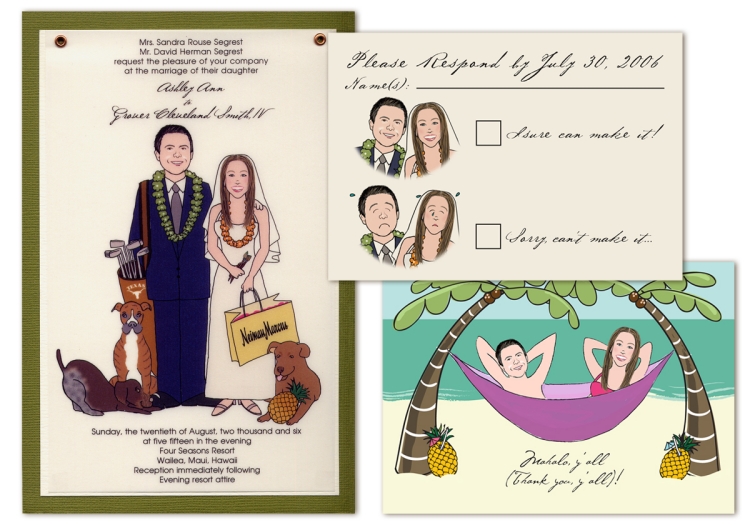 Mrs. Sandra Rouse Segrest
Mr. David Herman Segrest
request the pleasure of your company
at the marriage of their daughter
Ashley Ann
to
Grover Cleveland Smith, IV
TEXAS
Neiman Marcus
Sunday, the twentieth of August, two thousand and six
at five fifteen in the evening
Four Seasons Resort
Wailea, Maui, Hawaii
Reception immediately following
Evening resort attire
Please Respond by July 30, 2006
Name(s):
I sure can make it!
Sorry, can't make it...
Mahalo, y'all
(Thank you, y'all)!